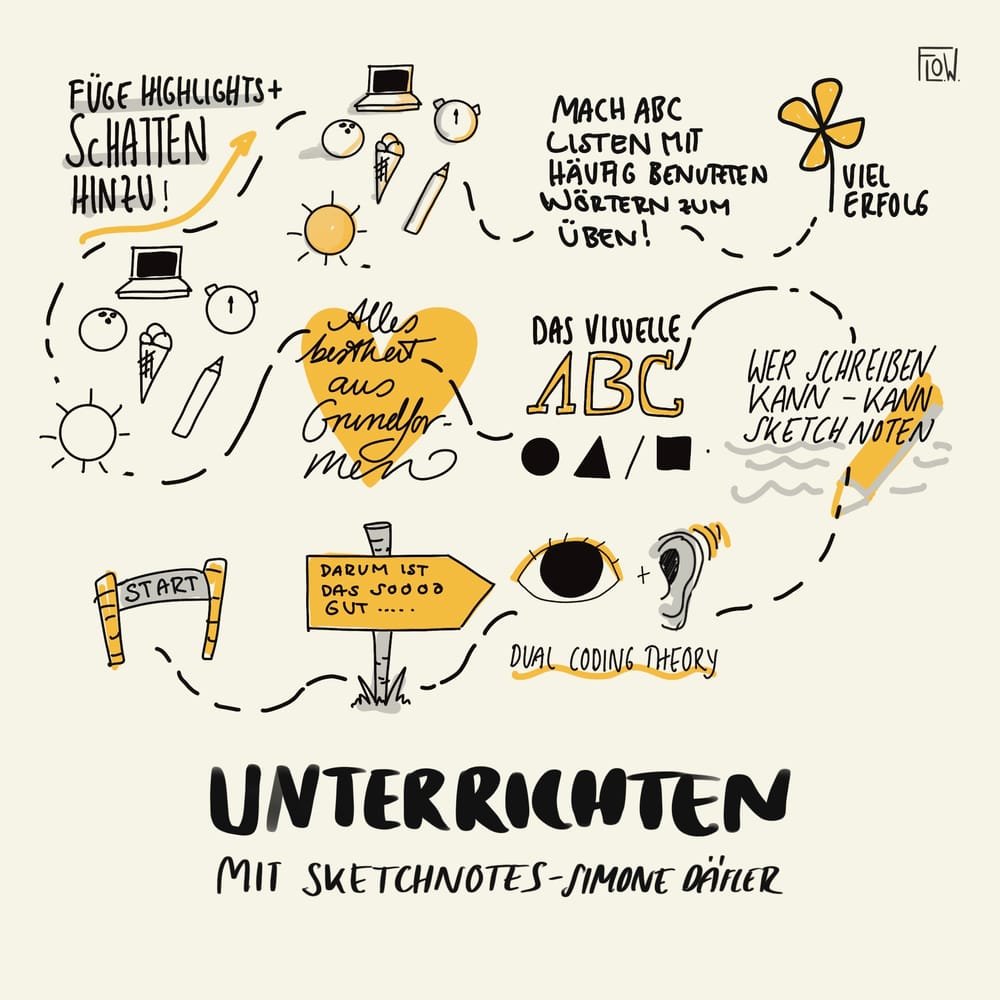 FLOW.
FÜGE HIGHLIGHTS +
SCHATTEN
HINZU!
MACH ABC
LISTEN MIT
HÄUFIG BENUTZTEN
WÖRTERN ZUM
ÜBEN!
VIEL
ERFOLG
Alles
besteht
aus
Grundfor-
men
DAS VISUELLE
ABC
WER SCHREIBEN
KANN - KANN
SKETCHNOTEN
START
DARUM IST
DAS SOOOO
GUT .....
+
DUAL CODING THEORY
UNTERRICHTEN
MIT SKETCHNOTES - SIMONE DÄFLER